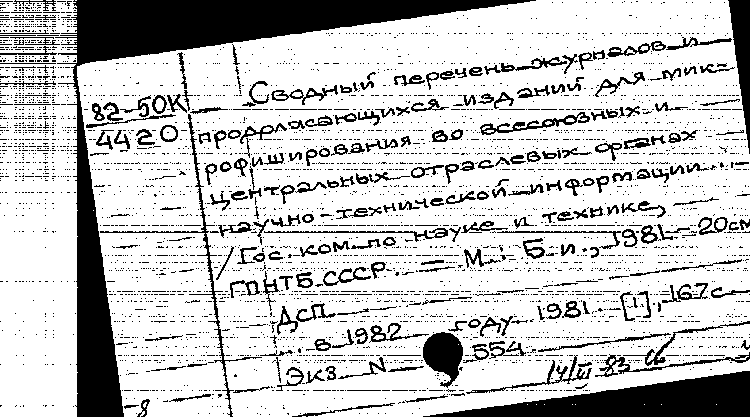 82-50К
4420
Сводный перечень журналов и
продолжающихся изданий для мик-
рофиширования во всесоюзных и
центральных отраслевых органах
научно-технической информации...
/Гос. ком. по науке и технике,
ГПНТБ СССР. — М.: Б. и., 1981.- 20см
Дсп.
... в 1982 году. 1981. [1], 167с.
Экз. N 554
14/III 83
8